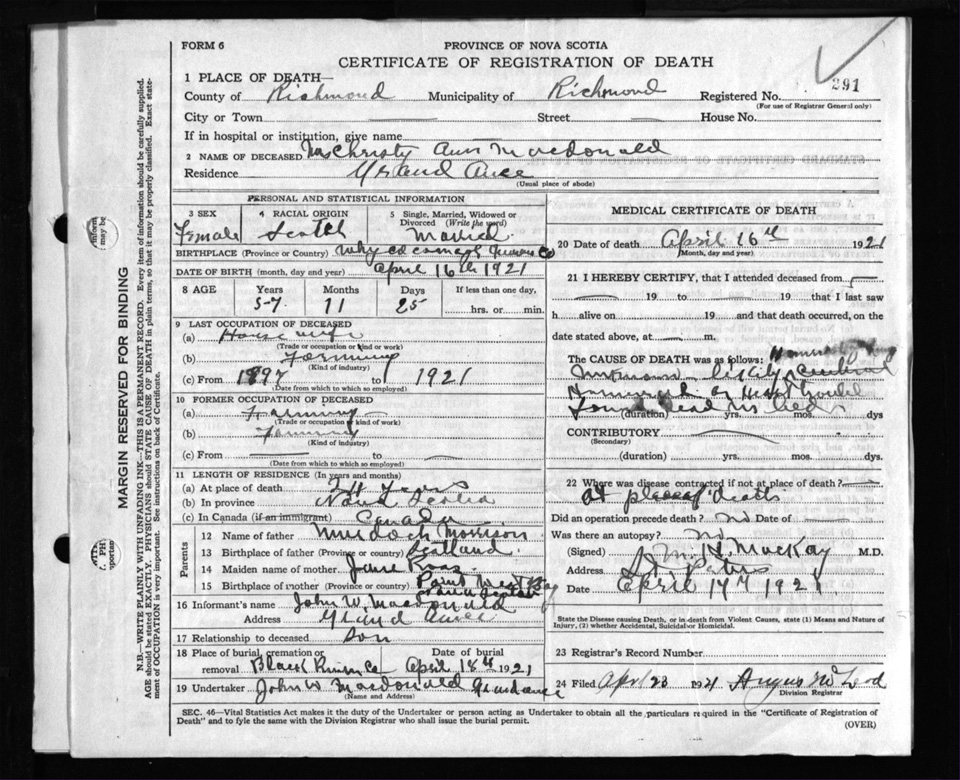 FORM 6
PROVINCE OF NOVA SCOTIA
CERTIFICATE OF REGISTRATION OF DEATH
1 PLACE OF DEATH—
County of Richmond Municipality of Richmond Registered No. 291
(For use of Registrar General only)
City or Town Street House No.
If in hospital or institution, give name
2 NAME OF DECEASED Mrs Christy Ann Macdonald
Residence Grand Ance
(Usual place of abode)
PERSONAL AND STATISTICAL INFORMATION
3 SEX Female
4 RACIAL ORIGIN Scotch
5 Single, Married, Widowed or Divorced (Write the word) Married
BIRTHPLACE (Province or Country)
DATE OF BIRTH (month, day and year) April 16th 1921
8 AGE Years Months Days If less than one day,
57 11 25 hrs. or min.
9 LAST OCCUPATION OF DECEASED
(a) House wife
(Trade or occupation or kind of work)
(b) Farming
(Kind of industry)
(c) From 1897 to 1921
(Date from which to which so employed)
10 FORMER OCCUPATION OF DECEASED
(a) Farming
(Trade or occupation or kind of work)
(b) Farming
(Kind of industry)
(c) From to
(Date from which to which so employed)
11 LENGTH OF RESIDENCE (In years and months)
(a) At place of death 24 Years
(b) In province Nova Scotia
(c) In Canada (if an immigrant) Canada
Parents
12 Name of father Murdoch Morrison
13 Birthplace of father (Province or country) Scotland
14 Maiden name of mother Jane Ross
15 Birthplace of mother (Province or country) Point West Bay
16 Informant's name John W. Macdonald
Address Grand Ance
17 Relationship to deceased Son
18 Place of burial, cremation or removal Black River Date of burial April 18th 1921
19 Undertaker John W Macdonald Grandance
(Name and Address)
MEDICAL CERTIFICATE OF DEATH
20 Date of death April 16th 1921
(Month, day and year)
21 I HEREBY CERTIFY, that I attended deceased from
19 to 19 that I last saw
h alive on 19 and that death occurred, on the
date stated above, at m.
The CAUSE OF DEATH was as follows:
Cerebral
Found dead in bed
(duration) yrs. mos. dys
CONTRIBUTORY
(Secondary)
(duration) yrs. mos. dys.
22 Where was disease contracted if not at place of death?
At place of death
Did an operation precede death? no Date of
Was there an autopsy? no
(Signed) H. MacKay M.D.
Address St Peters
Date April 17th 1921
State the Disease causing Death, or in death from Violent Causes, state (1) Means and Nature of Injury, (2) whether Accidental, Suicidal or Homicidal.
23 Registrar's Record Number
24 Filed April 23 1921 Angus McLeod
Division Registrar
SEC. 46—Vital Statistics Act makes it the duty of the Undertaker or person acting as Undertaker to obtain all the particulars required in the "Certificate of Registration of
Death" and to fyle the same with the Division Registrar who shall issue the burial permit.
(OVER)
MARGIN RESERVED FOR BINDING
N.B.—WRITE PLAINLY WITH UNFADING INK—THIS IS A PERMANENT RECORD. Every item of information should be carefully supplied.
AGE should be stated EXACTLY. PHYSICIANS should STATE CAUSE OF DEATH in plain terms, so that it may be properly classified. Exact state-
ment of OCCUPATION is very important. See instructions on back of Certificate.